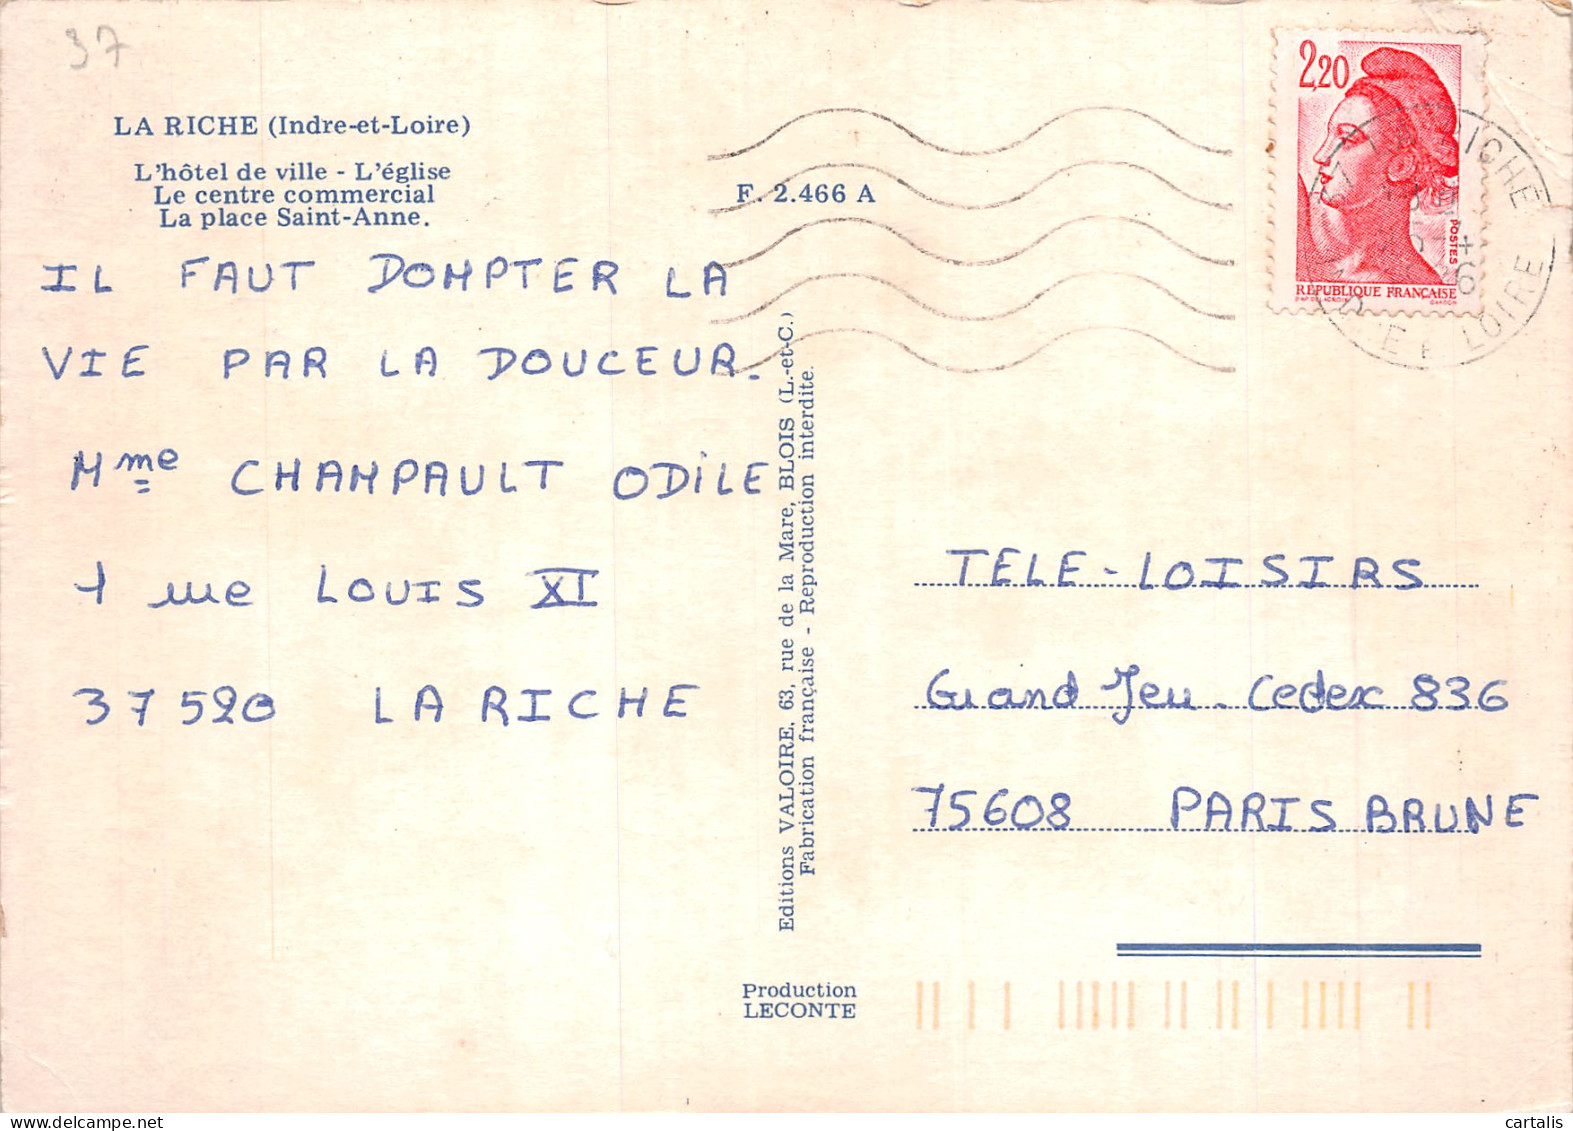 37
LA RICHE (Indre-et-Loire)
L'hôtel de ville - L'église
Le centre commercial
La place Saint-Anne.
F. 2.466 A
IL FAUT DOMPTER LA
VIE PAR LA DOUCEUR.
Mme CHAMPAULT ODILE
1 rue LOUIS XI
37520 LA RICHE
Editions VALOIRE. 63, rue de la Mare, BLOIS (L.-et-C.)
Fabrication française - Reproduction interdite.
Production
LECONTE
2,20
POSTES
RÉPUBLIQUE FRANÇAISE
LOIRE
TELE-LOISIRS
Grand Jeu. Cedex 836
75608 PARIS BRUNE
cartalis